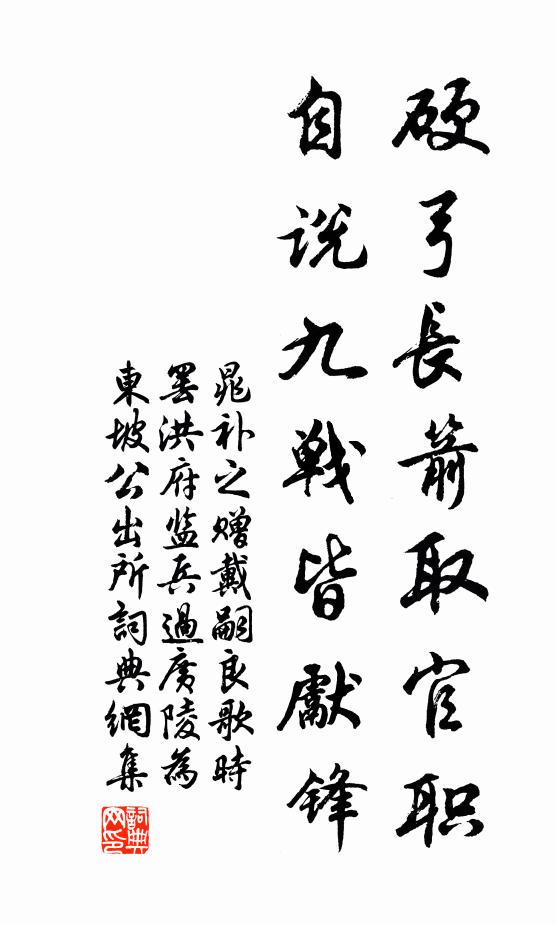 硬弓長箭取官职
自说九戦皆献锋
晁补之赠戴嗣良歌時
罢洪府监兵過廣陵為
東坡公出所詞典網集
詞典网印